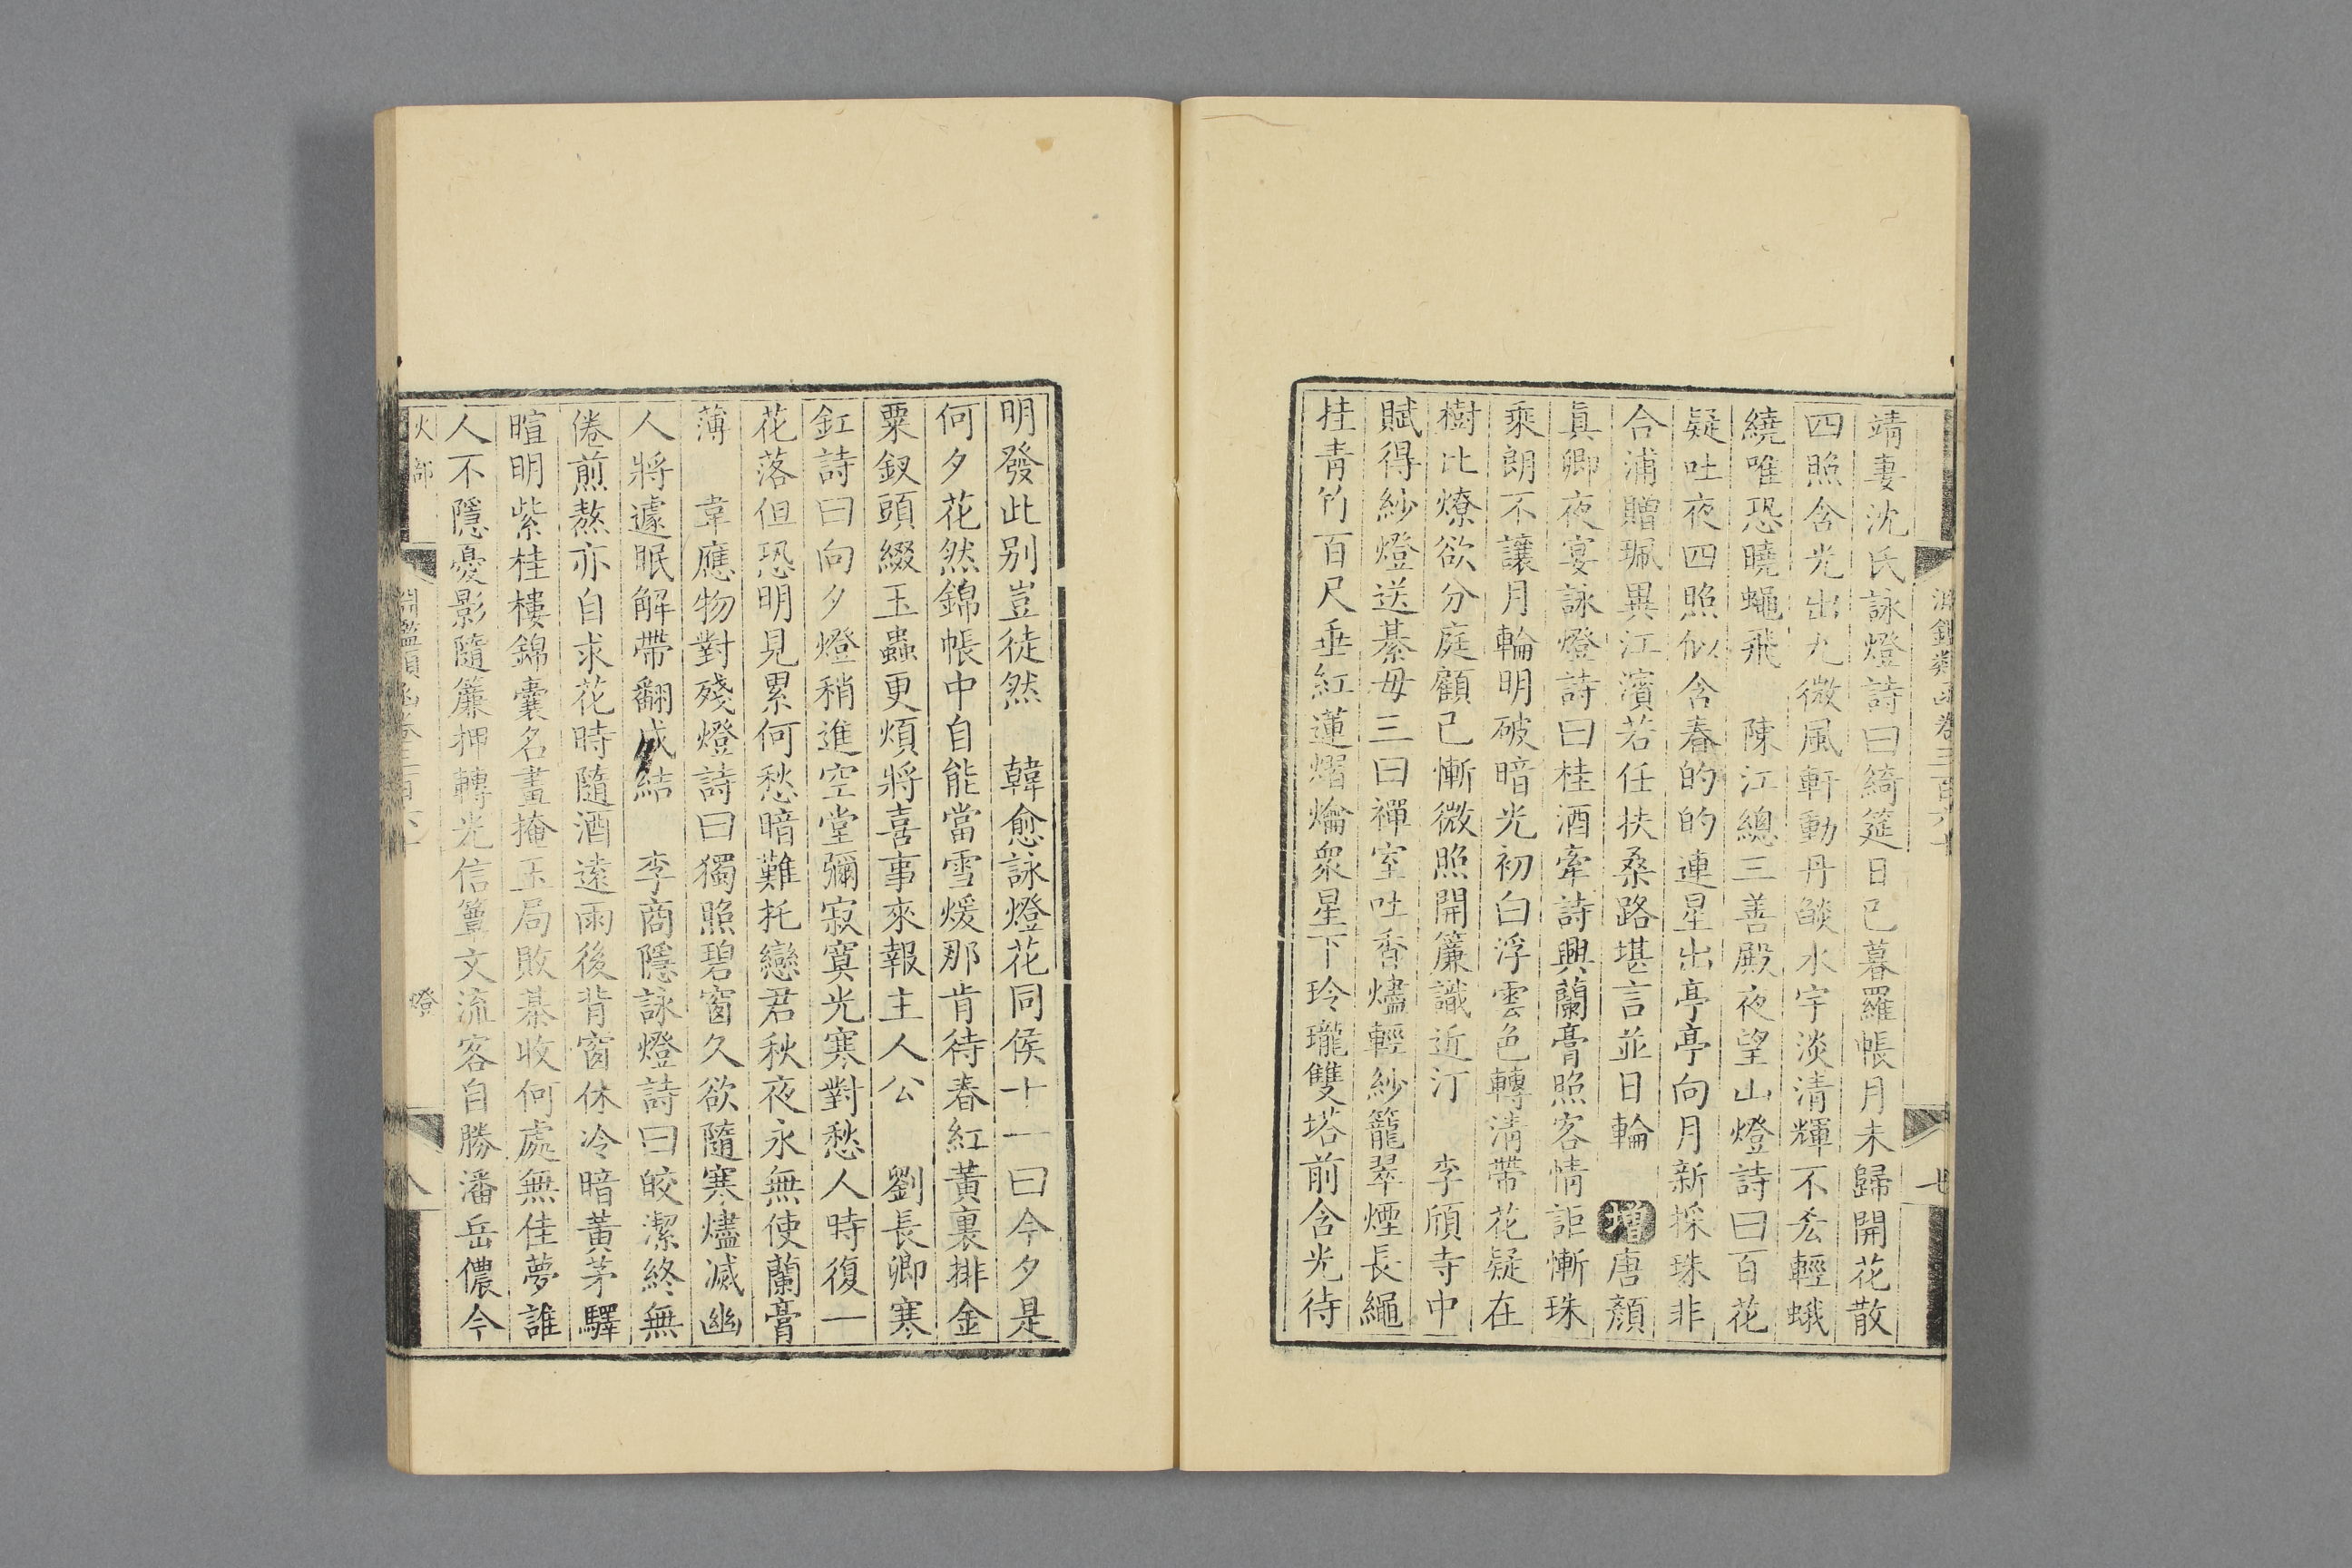 淵鑑類函卷三百六十
七
靖妻沈氏詠燈詩曰綺筵日已暮羅帳月未歸開花散
四照含光出九微風軒動丹燄水宇淡清輝不吝輕蛾
繞唯恐曉蠅飛　陳江總三善殿夜望山燈詩曰百花
疑吐夜四照似含春的的連星出亭亭向月新採珠非
合浦贈珮異江濱若任扶桑路堪言並日輪　增唐顏
真卿夜宴詠燈詩曰桂酒牽詩興蘭膏照客情詎慚珠
乘朗不讓月輪明破暗光初白浮雲色轉清帶花疑在
樹比燎欲分庭顧己慚微照開簾識近汀　李頎寺中
賦得紗燈送綦毋三曰禪室吐香燼輕紗籠翠煙長繩
挂青竹百尺垂紅蓮熠爚衆星下玲瓏雙塔前含光待
明發此別豈徒然　韓愈詠燈花同侯十一曰今夕是
何夕花然錦帳中自能當雪煖那肯待春紅黃裏排金
粟釵頭綴玉蟲更煩將喜事來報主人公　劉長卿寒
釭詩曰向夕燈稍進空堂彌寂寞光寒對愁人時復一
花落但恐明見累何愁暗難托戀君秋夜永無使蘭膏
薄　韋應物對殘燈詩曰獨照碧窗久欲隨寒燼滅幽
人將遽眠解帶翻成結　李商隱詠燈詩曰皎潔終無
倦煎熬亦自求花時隨酒遠雨後背窗休冷暗黃茅驛
暄明紫桂樓錦囊名畫掩玉局敗棊收何處無佳夢誰
人不隱憂影隨簾押轉光信簟文流客自勝潘岳儂今
火部
淵鑑類函卷三百六十
燈
八